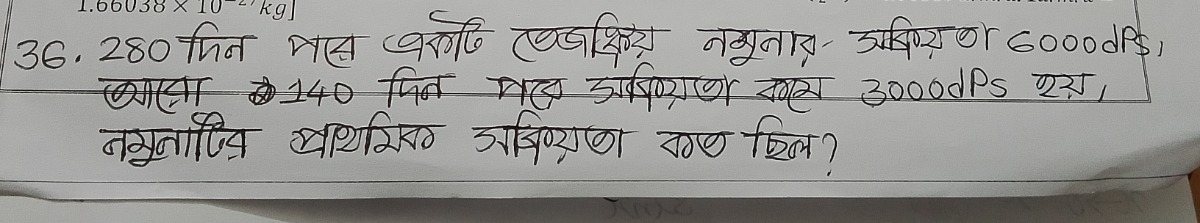 1.66038 × 10⁻²⁷ kg]
36. 280 দিন পরে একটি তেজস্ক্রিয় নমুনার সক্রিয়তা 6000dPs,
আরো 140 দিন পরে সক্রিয়তা কমে 3000dPs হয়,
নমুনাটির প্রাথমিক সক্রিয়তা কত ছিল?